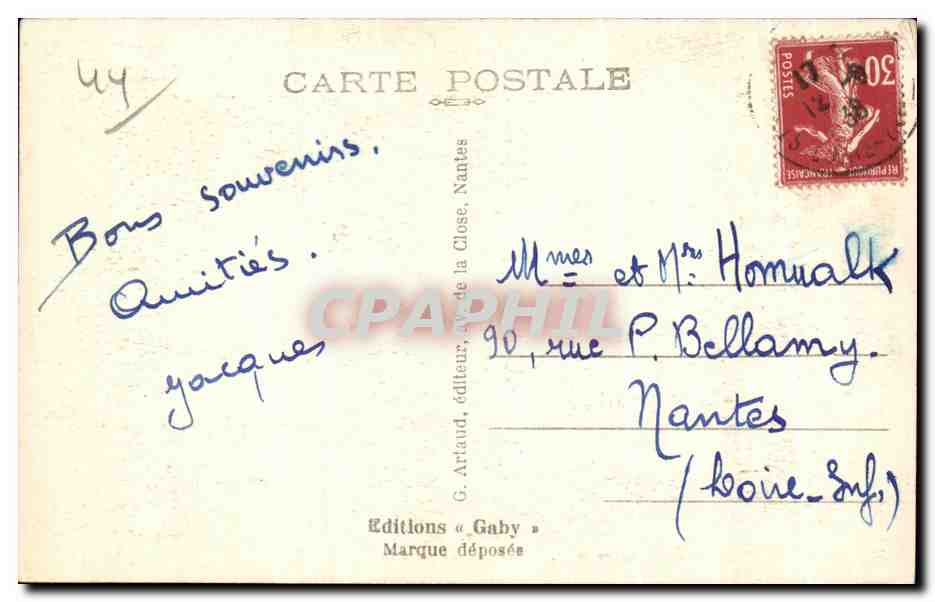 44
CARTE POSTALE
Bons souvenirs.
Amitiés.
Jacques
G. Artaud, éditeur, av. de la Close, Nantes
30
POSTES
REPUBLIQUE FRANÇAISE
17
12
38
Mmes et Mrs Homualk
90, rue P. Bellamy.
Nantes
(Loire-Inf.)
CPAPHIL
Editions « Gaby »
Marque déposée